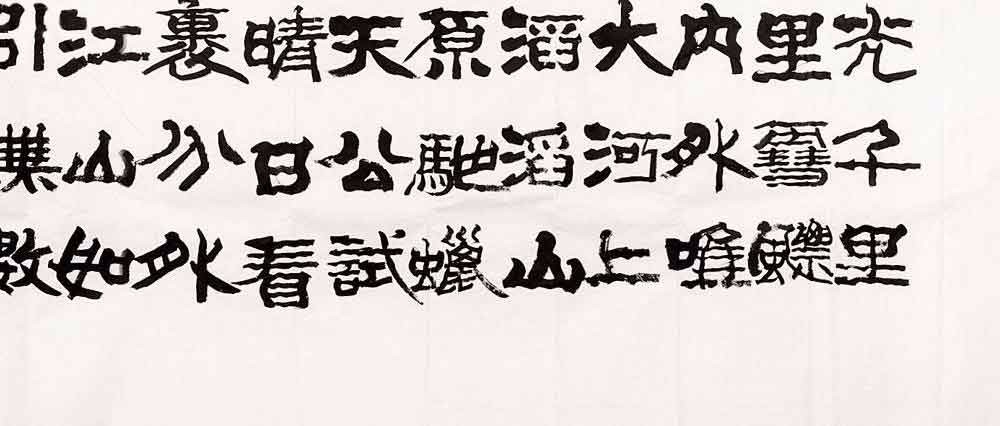 光千里
里雪
内外唯
大河上
滔滔山
原馳蠟
天公試
晴日看
裹分外
江山如
引無數